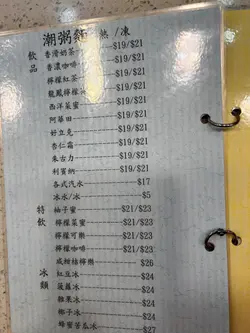 潮粥 熱/凍
飲品
香滑奶茶 $19/$21
香濃咖啡 $19/$21
檸檬紅茶 $19/$21
龍鳳檸檬 $19/$21
西洋菜蜜 $19/$21
阿華田 $19/$21
好立克 $19/$21
杏仁霜 $19/$21
朱古力 $19/$21
利賓納 $19/$21
各式汽水 $17
冰水/冰 $5
特飲
柚子蜜 $21/$23
檸檬菜蜜 $21/$23
檸檬可樂 $21/$23
檸檬咖啡 $21/$23
咸柑桔檸樂 $26
冰類
紅豆冰 $24
菠蘿冰 $24
雜果冰 $24
椰子冰 $24
蜂蜜苦瓜冰 $27